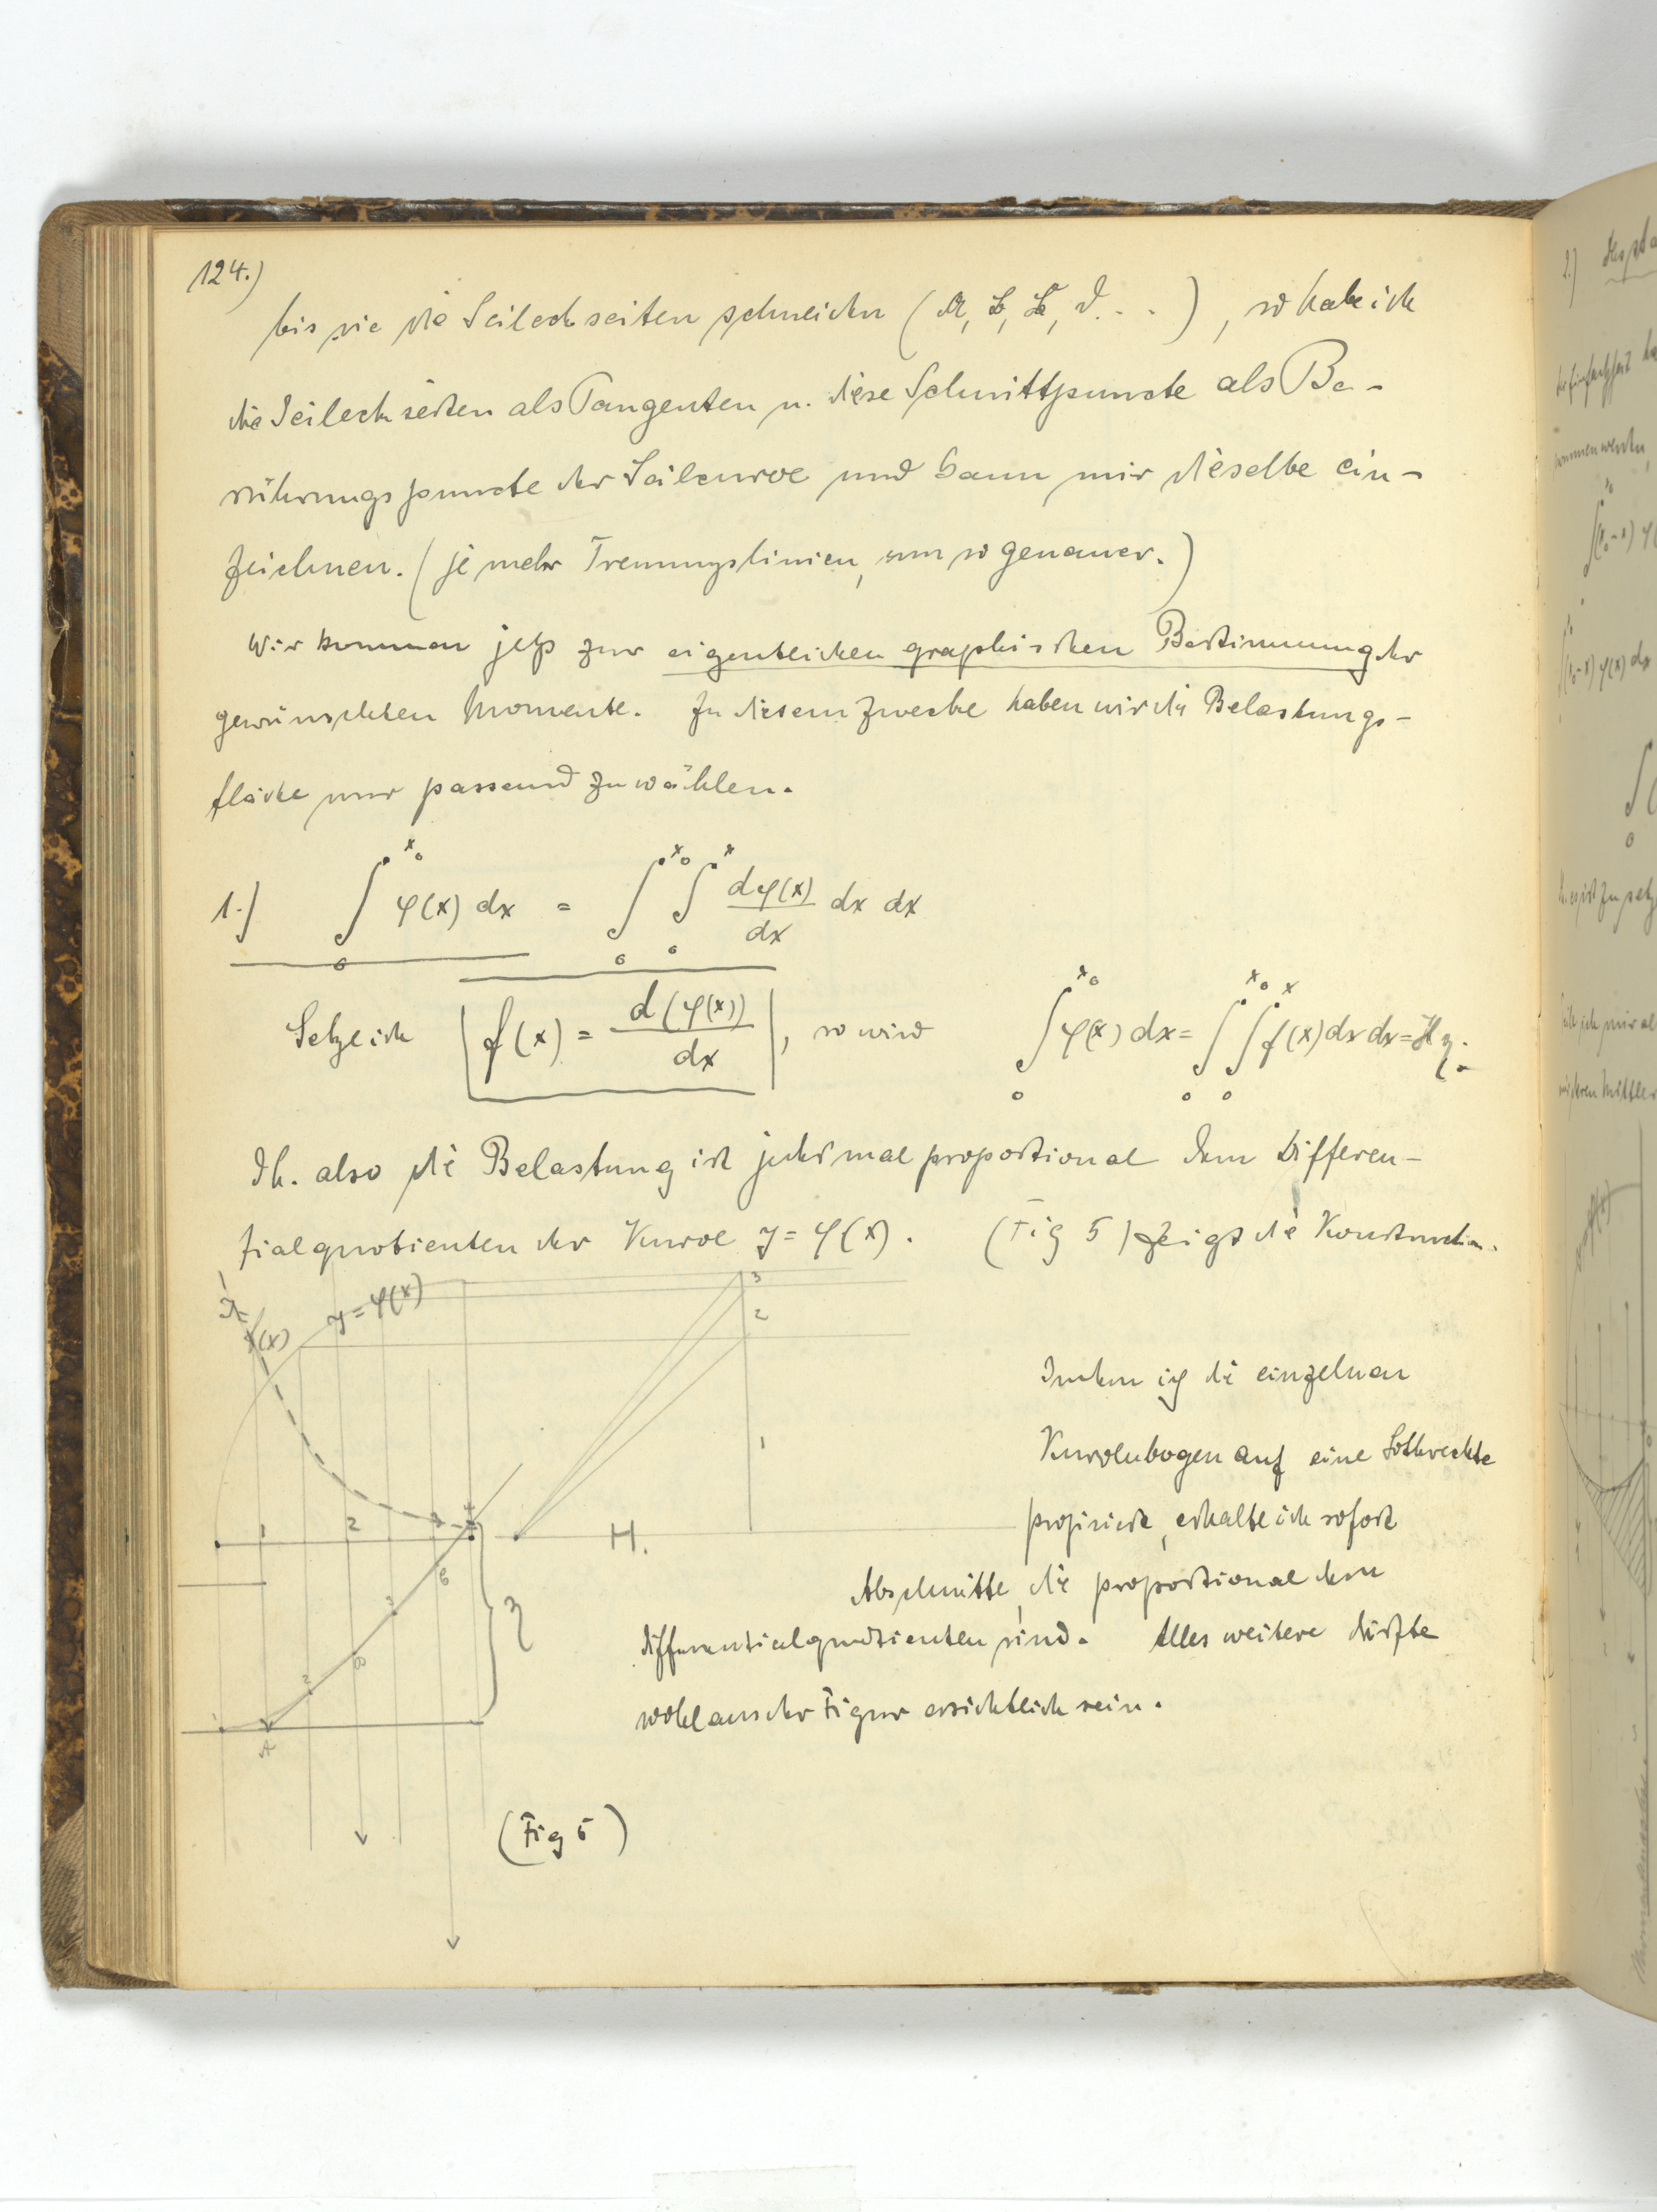 124.)
bis sie die Seileckseiten schneiden (A, B, C, D...), so habe ich
die Seileckseiten als Tangenten u. diese Schnittpuncte als Be-
rührungspuncte der Seilcurve und kann mir dieselbe ein-
zeichnen. (je mehr Trennungslinien, um so genauer.)
Wir kommen jetzt zur eigentlichen graphischen Bestimmung der
gewünschten Momente. Zu diesem Zwecke haben wir die Belastungs-
fläche nur passend zu wählen.
1.) ∫₀^{x₀} φ(x) dx = ∫₀^{x₀} ∫₀^{x} dφ(x)/dx dx dx
Setze ich | f(x) = d(φ(x))/dx |, so wird ∫₀^{x₀} φ(x) dx = ∫₀^{x₀} ∫₀^{x} f(x) dx dx = H η.
Dh. also die Belastung ist jedesmal proportional dem Differen-
zialquotienten der Kurve y = φ(x). (Fig 5) zeigt die Konstruction.
y = φ(x)
f(x)
3
2
1
Indem ich die einzelnen
Kurvenbogen auf eine Lothrechte
projiciere, erhalte ich sofort
1 2 3 4
H.
Abschnitte, die proportional dem
Differentialquotienten sind. Alles weitere dürfte
wohl aus der Figur ersichtlich sein.
C
3
η
B
2
1
A
(Fig 5)